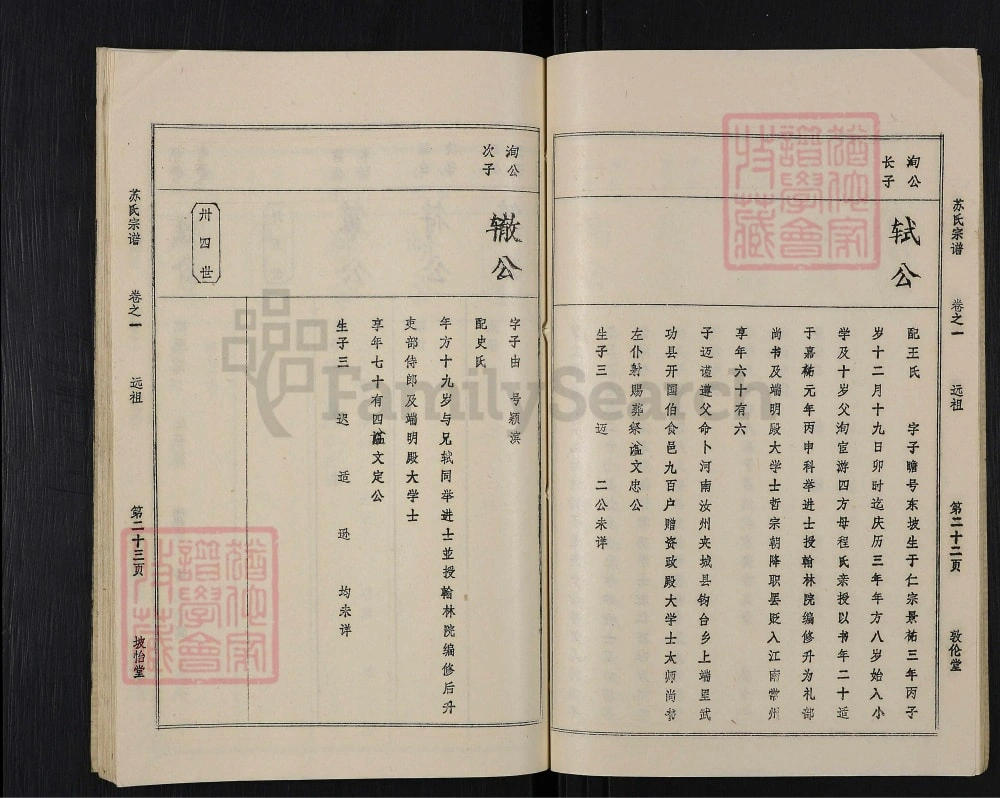 苏氏宗谱 卷之一 远祖 第二十二页 敦伦堂
洵公
长子
轼公
配王氏 字子瞻号东坡生于仁宗景祐三年丙子
岁十二月十九日卯时迄庆历三年年方八岁始入小
学及十岁父洵宦游四方母程氏亲授以书年二十适
于嘉祐元年丙申科举进士授翰林院编修升为礼部
尚书及端明殿大学士哲宗朝降职罢贬入江南常州
享年六十有六
子迈谥遵父命卜河南汝州夹城县钧台乡上端里武
功县开国伯食邑九百户赠资政殿大学士太师尚书
左仆射赐葬祭谥文忠公
生子三 迈 二公未详
洵公
次子
辙公
字子由 号颖滨
配史氏
年方十九岁与兄轼同举进士並授翰林院编修后升
吏部侍郎及端明殿大学士
享年七十有四谥文定公
生子三 迟 适 逊 均未详
卅四世
苏氏宗谱 卷之一 远祖 第二十三页 坡怡堂
FamilySearch